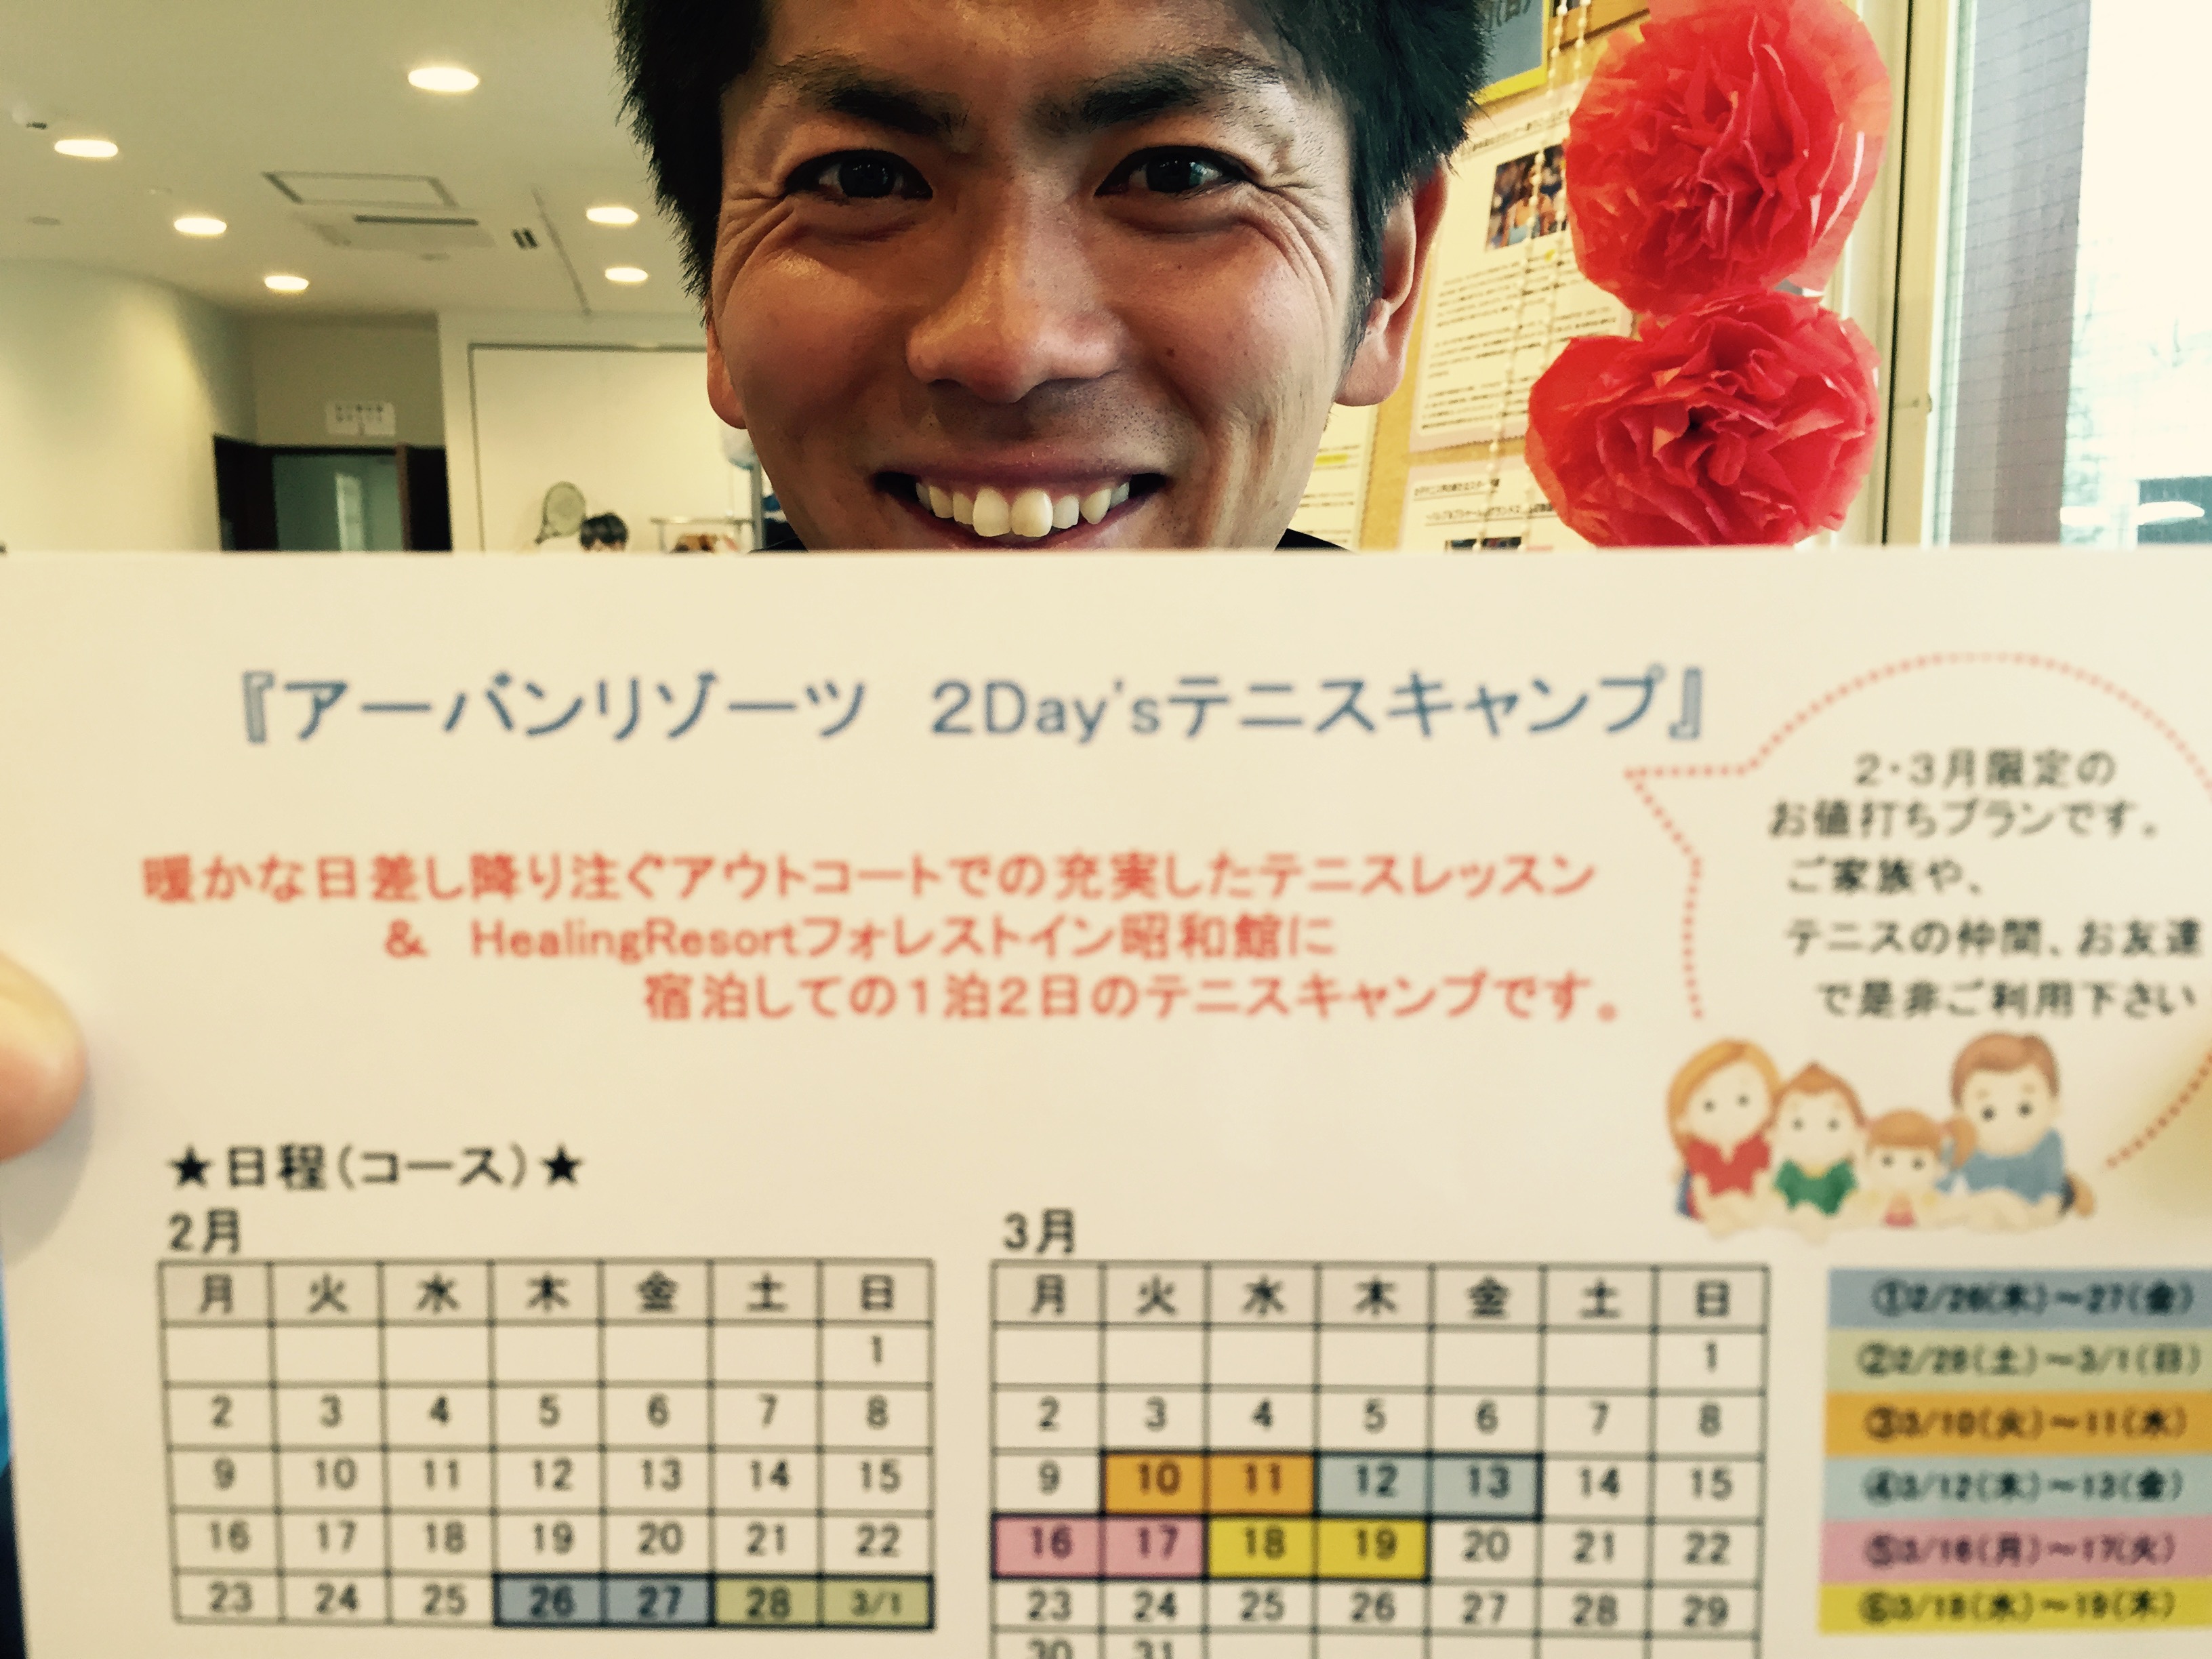 『アーバンリゾーツ　2Day'sテニスキャンプ』
2・3月限定の
お値打ちプランです。
ご家族や、
テニスの仲間、お友達
で是非ご利用下さい
暖かな日差し降り注ぐアウトコートでの充実したテニスレッスン
&　HealingResortフォレストイン昭和館に
宿泊しての1泊2日のテニスキャンプです。
★日程(コース)★
2月
月 火 水 木 金 土 日
1
2 3 4 5 6 7 8
9 10 11 12 13 14 15
16 17 18 19 20 21 22
23 24 25 26 27 28 3/1
3月
月 火 水 木 金 土 日
1
2 3 4 5 6 7 8
9 10 11 12 13 14 15
16 17 18 19 20 21 22
23 24 25 26 27 28 29
30 31
①2/26(木)～27(金)
②2/28(土)～3/1(日)
③3/10(火)～11(水)
④3/12(木)～13(金)
⑤3/16(月)～17(火)
⑥3/18(水)～19(木)